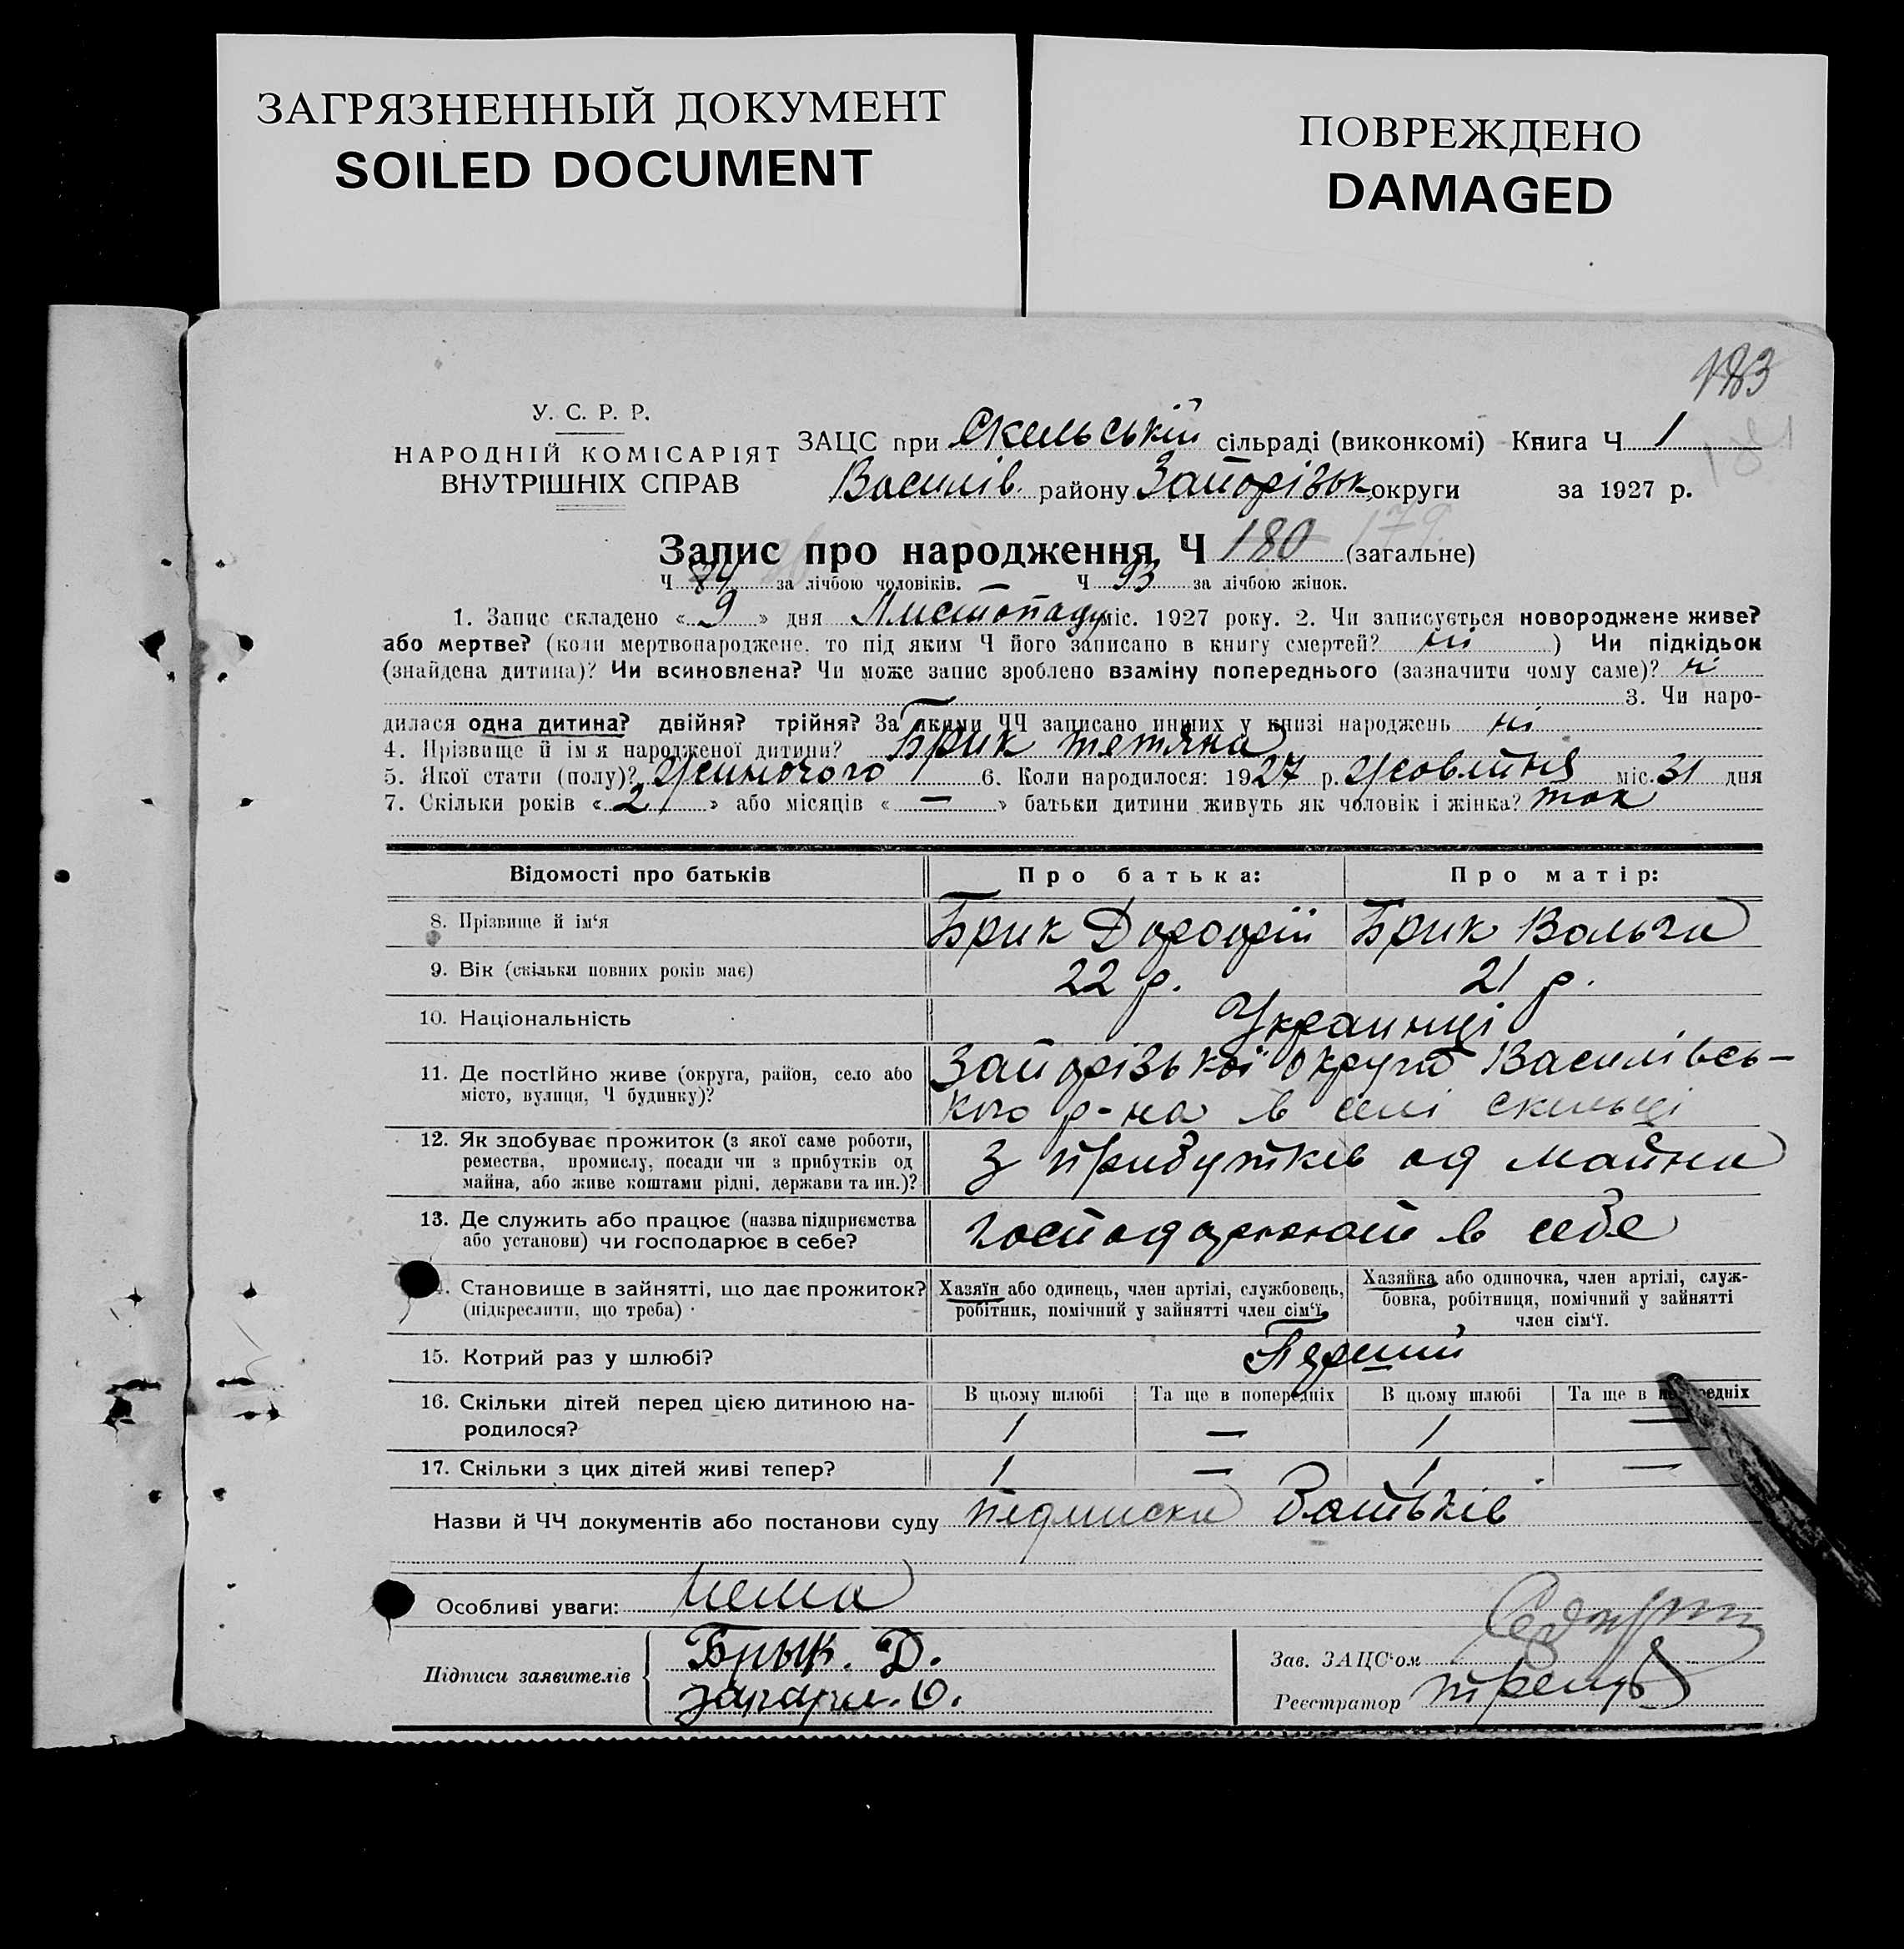 ЗАГРЯЗНЕННЫЙ ДОКУМЕНТ
SOILED DOCUMENT
ПОВРЕЖДЕНО
DAMAGED
183
181
У. С. Р. Р.
НАРОДНІЙ КОМІСАРІЯТ
ВНУТРІШНІХ СПРАВ
ЗАЦС при Скельській сільраді (виконкомі) Книга Ч 1
Василів. району Запорізьк округи за 1927 р.
Запис про народження Ч 180 (загальне) 179
Ч за лічбою чоловіків. — Ч 93 за лічбою жінок.
1. Запис складено « 9 » дня Листопаду міс. 1927 року. 2. Чи записується новороджене живе?
або мертве? (коли мертвонароджене, то під яким Ч його записано в книгу смертей? ні ) Чи підкідьок
(знайдена дитина)? Чи всиновлена? Чи може запис зроблено взаміну попереднього (зазначити чому саме)? ні
3. Чи наро-
дилася одна дитина? двійня? трійня? За якими ЧЧ записано инших у книзі народжень ні
4. Прізвище й імя народженої дитини? Брик Тетяна
5. Якої стати (полу)? Жиночого 6. Коли народилося: 1927 р. Жовтня міс. 31 дня
7. Скільки років « 2 » або місяців « — » батьки дитини живуть як чоловік і жінка? так
Відомості про батьків Про батька: Про матір:
8. Прізвище й ім‘я Брик Дорофій Брик Вольга
9. Вік (скільки повних років має) 22 р. 21 р.
10. Національність Украинці
11. Де постійно живе (округа, район, село або Запорізької округи Василівсь-
місто, вулиця, Ч будинку)? кого р-на в селі Скельці
12. Як здобуває прожиток (з якої саме роботи,
ремества, промислу, посади чи з прибутків од з прибутків од майна
майна, або живе коштами рідні, держави та ин.)?
13. Де служить або працює (назва підприємства
або установи) чи господарює в себе? господарюють в себе
Становище в зайнятті, що дає прожиток? Хазяїн або одинець, член артілі, службовець, Хазяйка або одиночка, член артілі, служ-
(підкреслити, що треба) робітник, помічний у зайнятті член сім‘ї. бовка, робітниця, помічний у зайнятті
член сім‘ї.
15. Котрий раз у шлюбі? Перший
16. Скільки дітей перед цією дитиною на- В цьому шлюбі Та ще в попередніх В цьому шлюбі Та ще в попередніх
родилося? 1 — 1 —
17. Скільки з цих дітей живі тепер? 1 — 1 —
Назви й ЧЧ документів або постанови суду підписка батьків
Особливі уваги: нема
Підписи заявителів Брык. Д.
Зав. ЗАЦС‘ом
Реєстратор